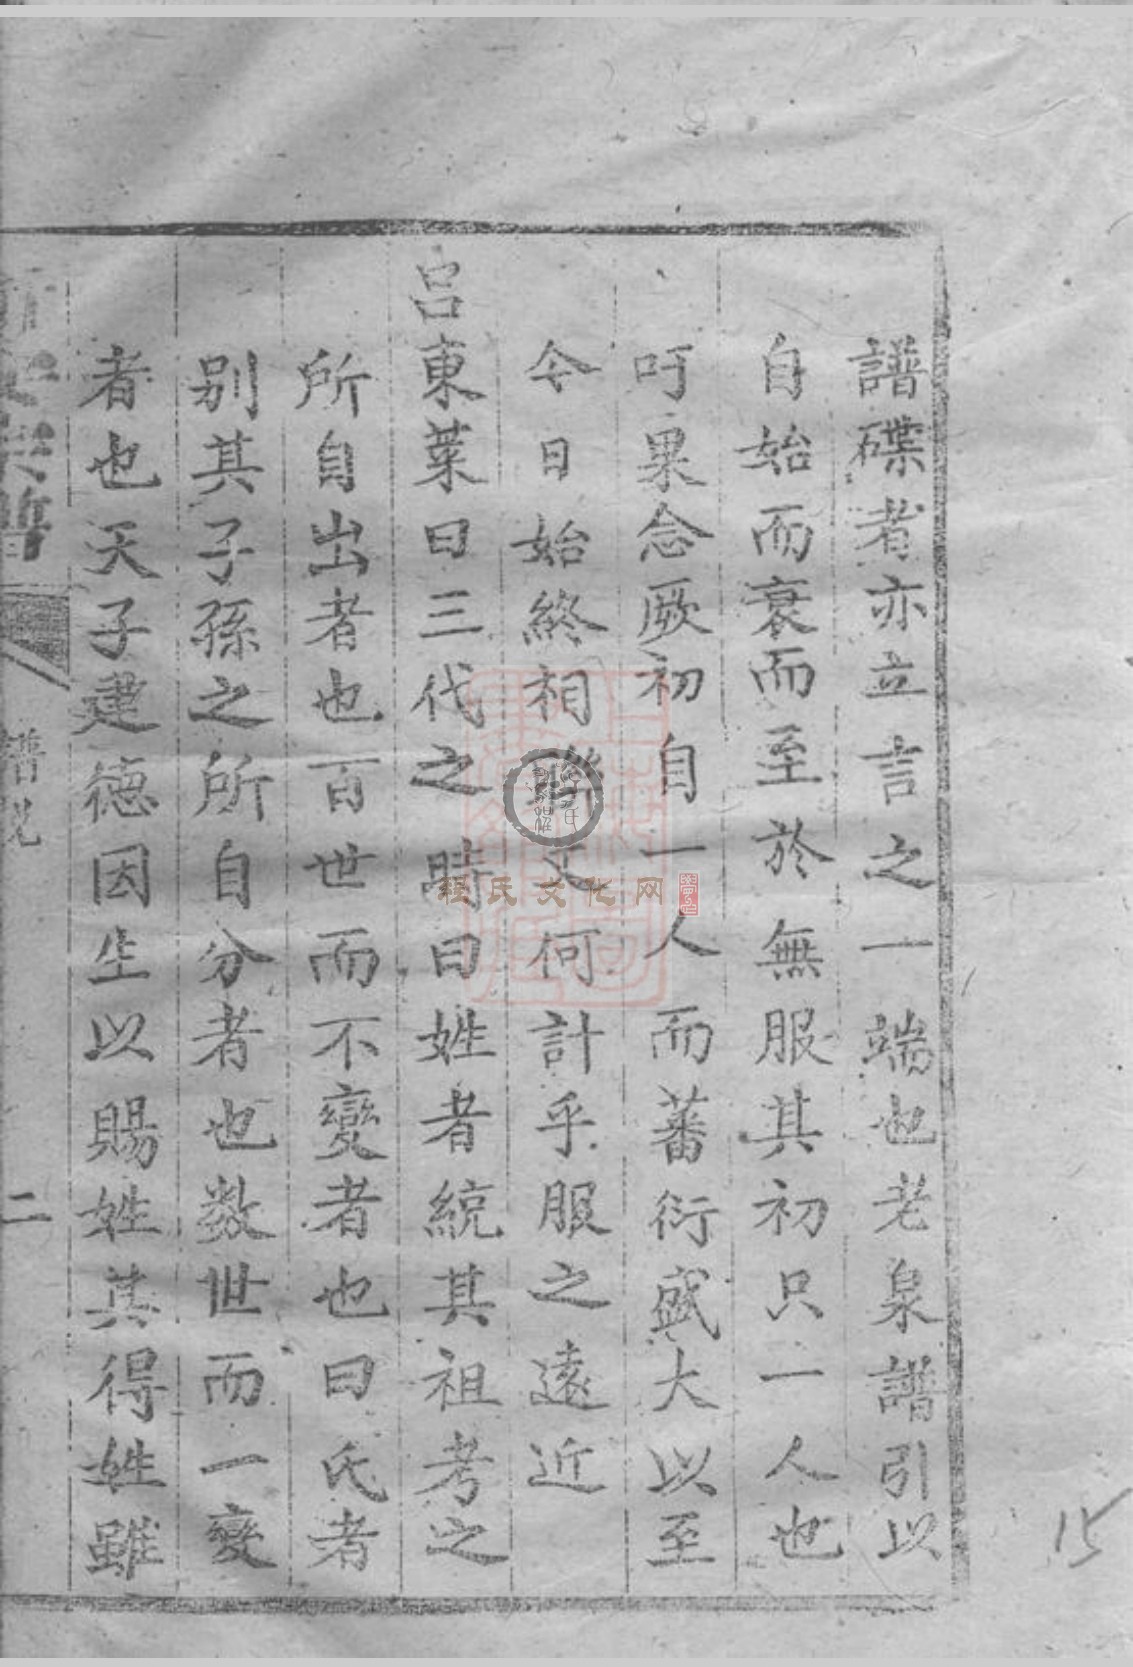 譜牒者亦立言之一端也老泉譜引以
自始而衰而至於無服其初只一人也
吁果念厥初自一人而蕃衍盛大以至
今日始終相聯又何計乎服之遠近
呂東萊曰三代之時曰姓者統其祖考之
所自出者也百世而不變者也曰氏者
别其子孫之所自分者也数世而一變
者也天子建德因生以賜姓其得姓雖
譜説
二
程氏文化网
15